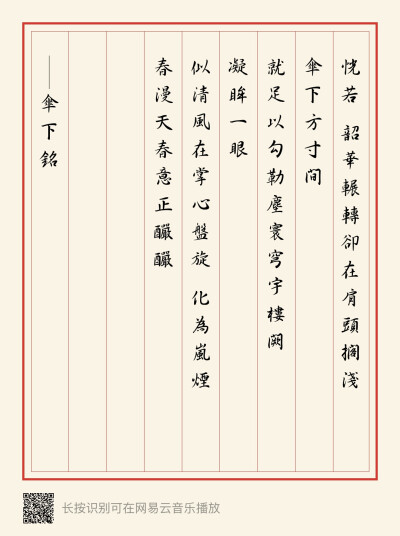 恍若 韶華輾轉卻在肩頭擱淺
傘下方寸間
就足以勾勒塵寰穹宇樓闕
凝眸一眼
似清風在掌心盤旋 化為嵐煙
春漫天春意正釅釅
——傘下銘
长按识别可在网易云音乐播放